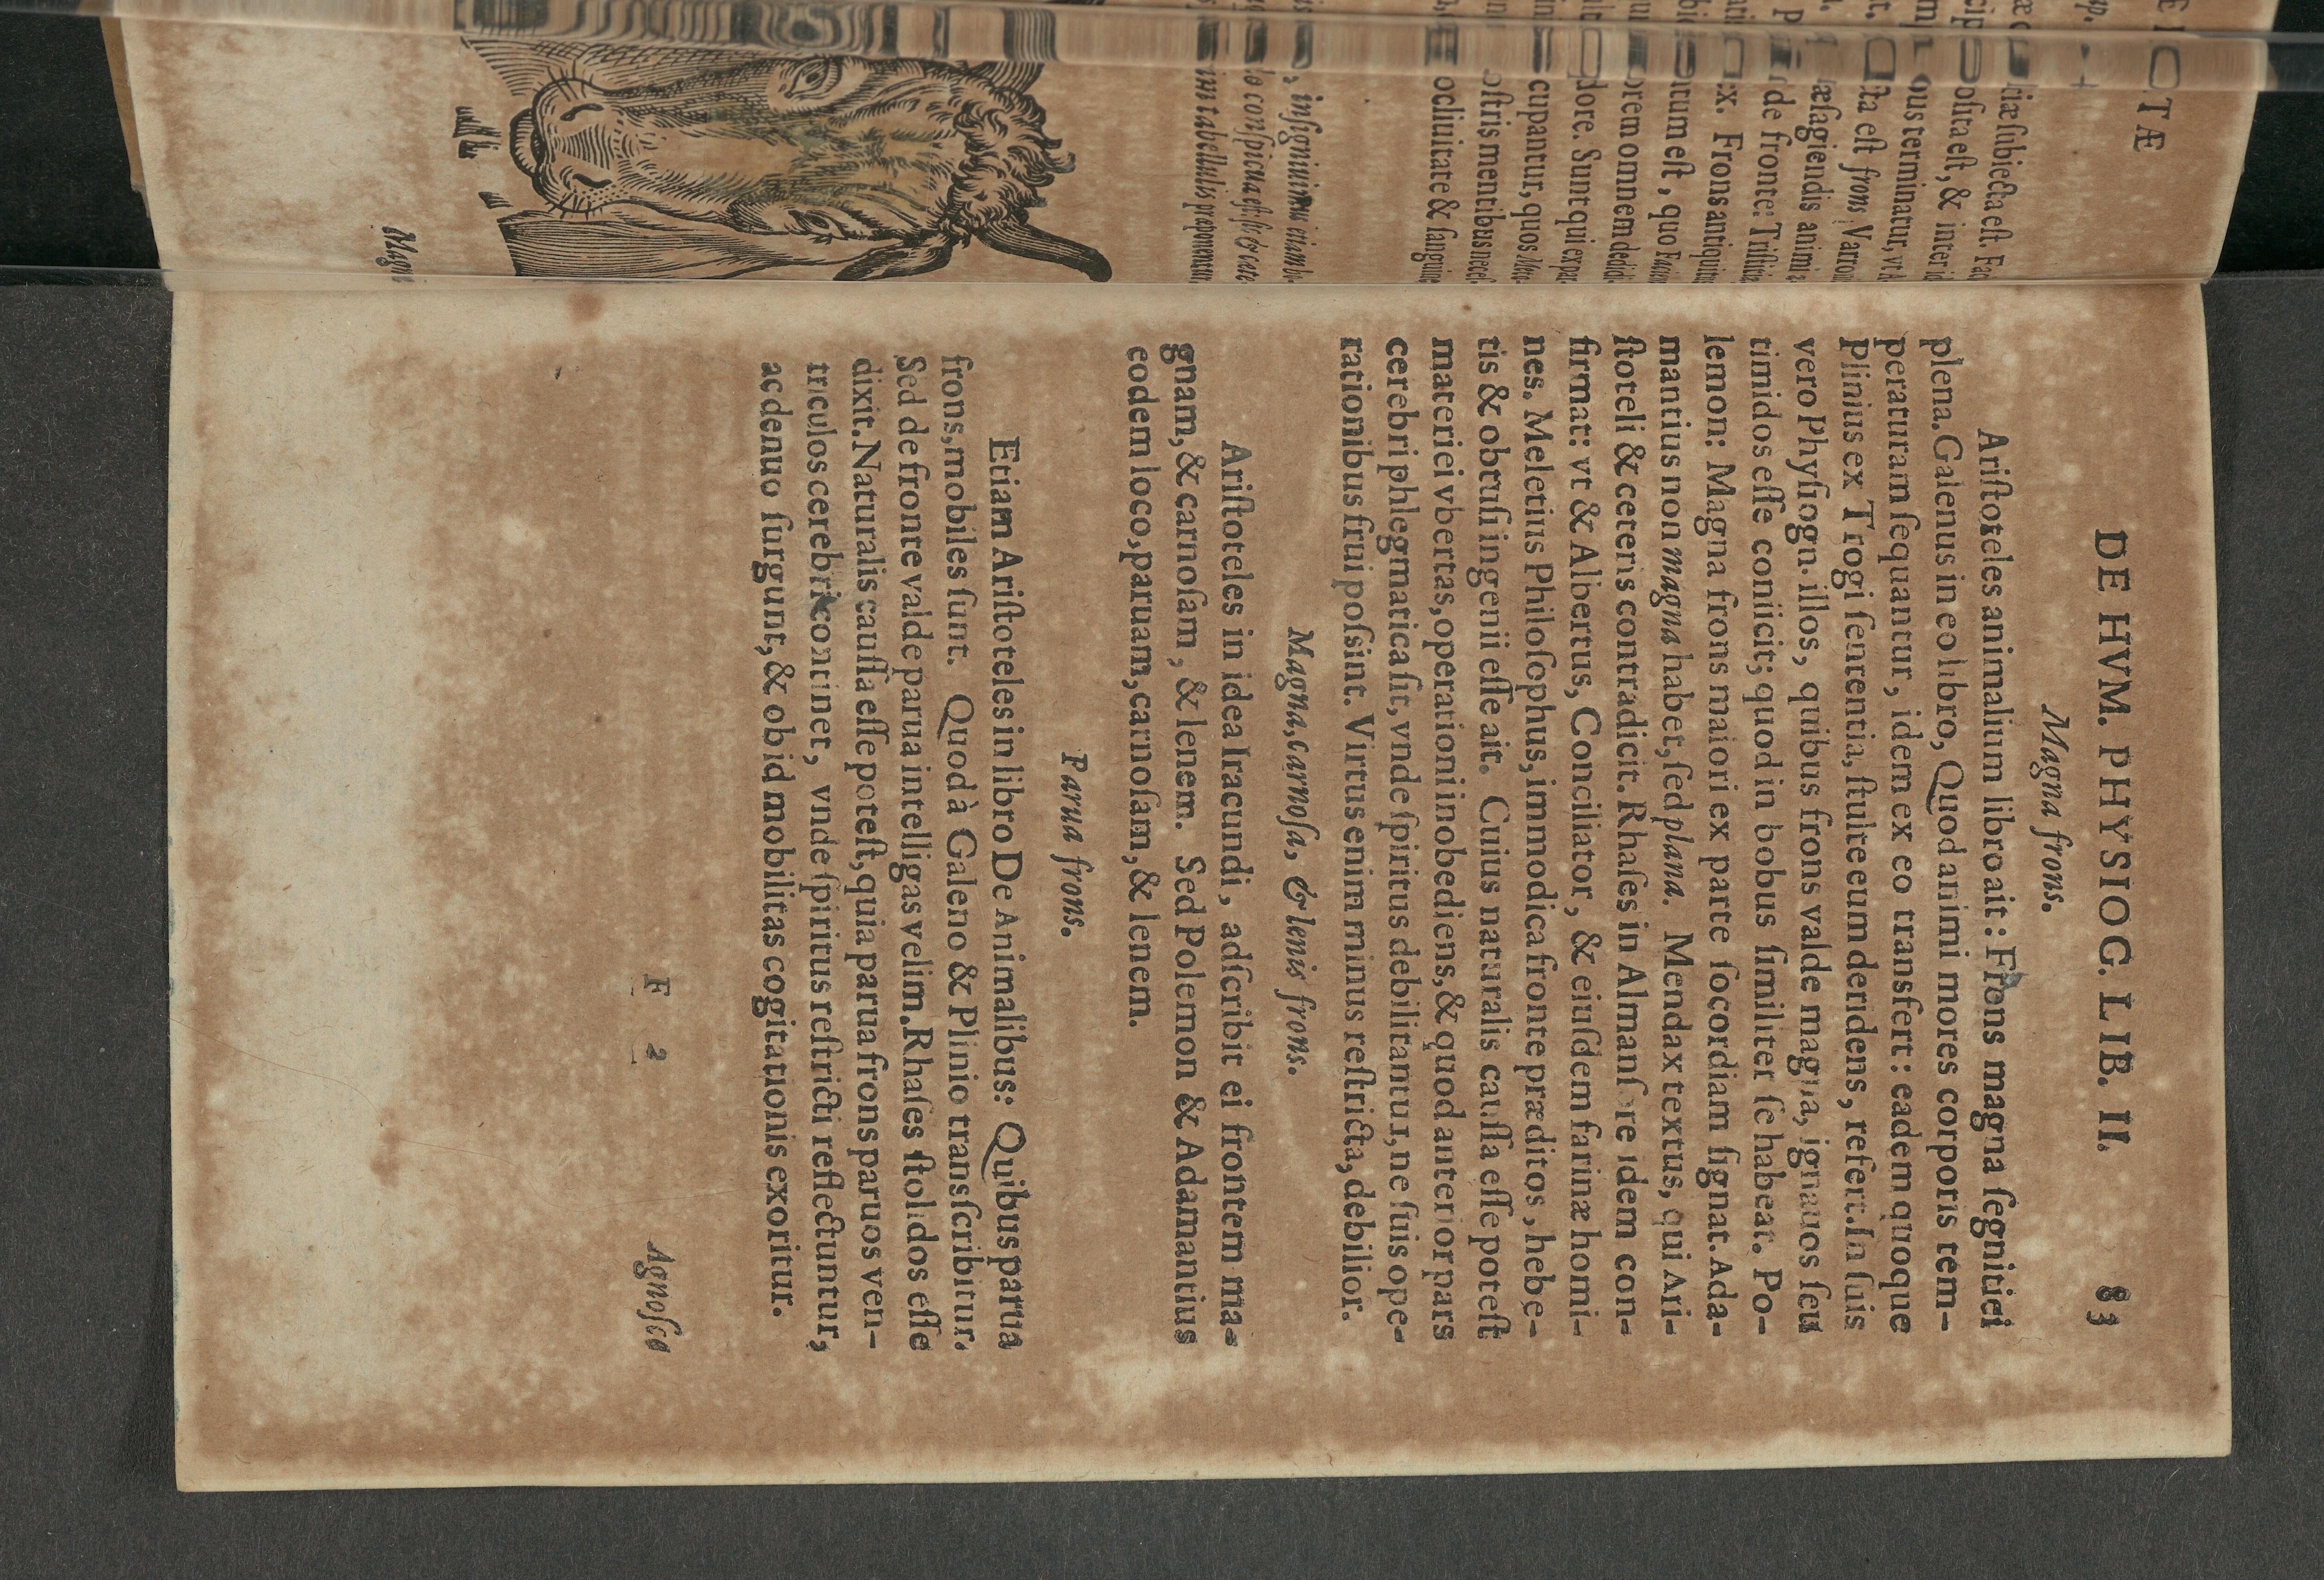 ICTÆ
ciæ subiecta est. Fac
osita est, & inter id
ous terminatur, vt A
sta est frons Varro
æsagiendis animi
de fronte: Tristitia
x. Frons antiquitus
tum est, quo Faciem
orem omnem dedid
dore. Sunt qui expa
cupantur, quos Men
ostris mentibus necess
ocliuitate & sanguine
, insigniuimus etiam br
lo conspicua est: sic & cæte
im tabellulis præponentur.
Magn
DE HVM. PHYSIOG. LIB. II. 83
Magna frons.
Ariſtoteles animalium libro ait: Frons magna ſegnitiei
plena. Galenus in eo libro, Quod animi mores corporis tem-
peraturam ſequantur, idem ex eo transfert: eadem quoque
Plinius ex Trogi ſententia, ſtulte eum deridens, refert. In ſuis
vero Phyſiogn. illos, quibus frons valde magna, ignauos ſeu
timidos eſſe coniicit; quod in bobus ſimiliter ſe habeat. Po-
lemon: Magna frons maiori ex parte ſocordiam ſignat. Ada-
mantius non magna habet, ſed plana. Mendax textus, qui Ari-
ſtoteli & ceteris contradicit. Rhaſes in Almanſore idem con-
firmat: vt & Albertus, Conciliator, & eiuſdem farinæ homi-
nes. Meletius Philoſophus, immodica fronte præditos, hebe-
tis & obtuſi ingenii eſſe ait. Cuius naturalis cauſſa eſſe poteſt
materiei vbertas, operationi inobediens, & quod anterior pars
cerebri phlegmatica ſit, vnde ſpiritus debilitantur, ne ſuis ope-
rationibus frui poſsint. Virtus enim minus reſtricta, debilior.
Magna, carnoſa, & lenis frons.
Ariſtoteles in idea Iracundi, adſcribit ei frontem ma-
gnam, & carnoſam, & lenem. Sed Polemon & Adamantius
eodem loco, paruam, carnoſam, & lenem.
Parua frons.
Etiam Ariſtoteles in libro De Animalibus: Quibus parua
frons, mobiles ſunt. Quod à Galeno & Plinio transſcribitur.
Sed de fronte valde parua intelligas velim. Rhaſes ſtolidos eſſe
dixit. Naturalis cauſſa eſſe poteſt, quia parua frons paruos ven-
triculos cerebri continet, vnde ſpiritus reſtricti reflectuntur,
ac denuo ſurgunt, & ob id mobilitas cogitationis exoritur.
F 2 Agnoſco